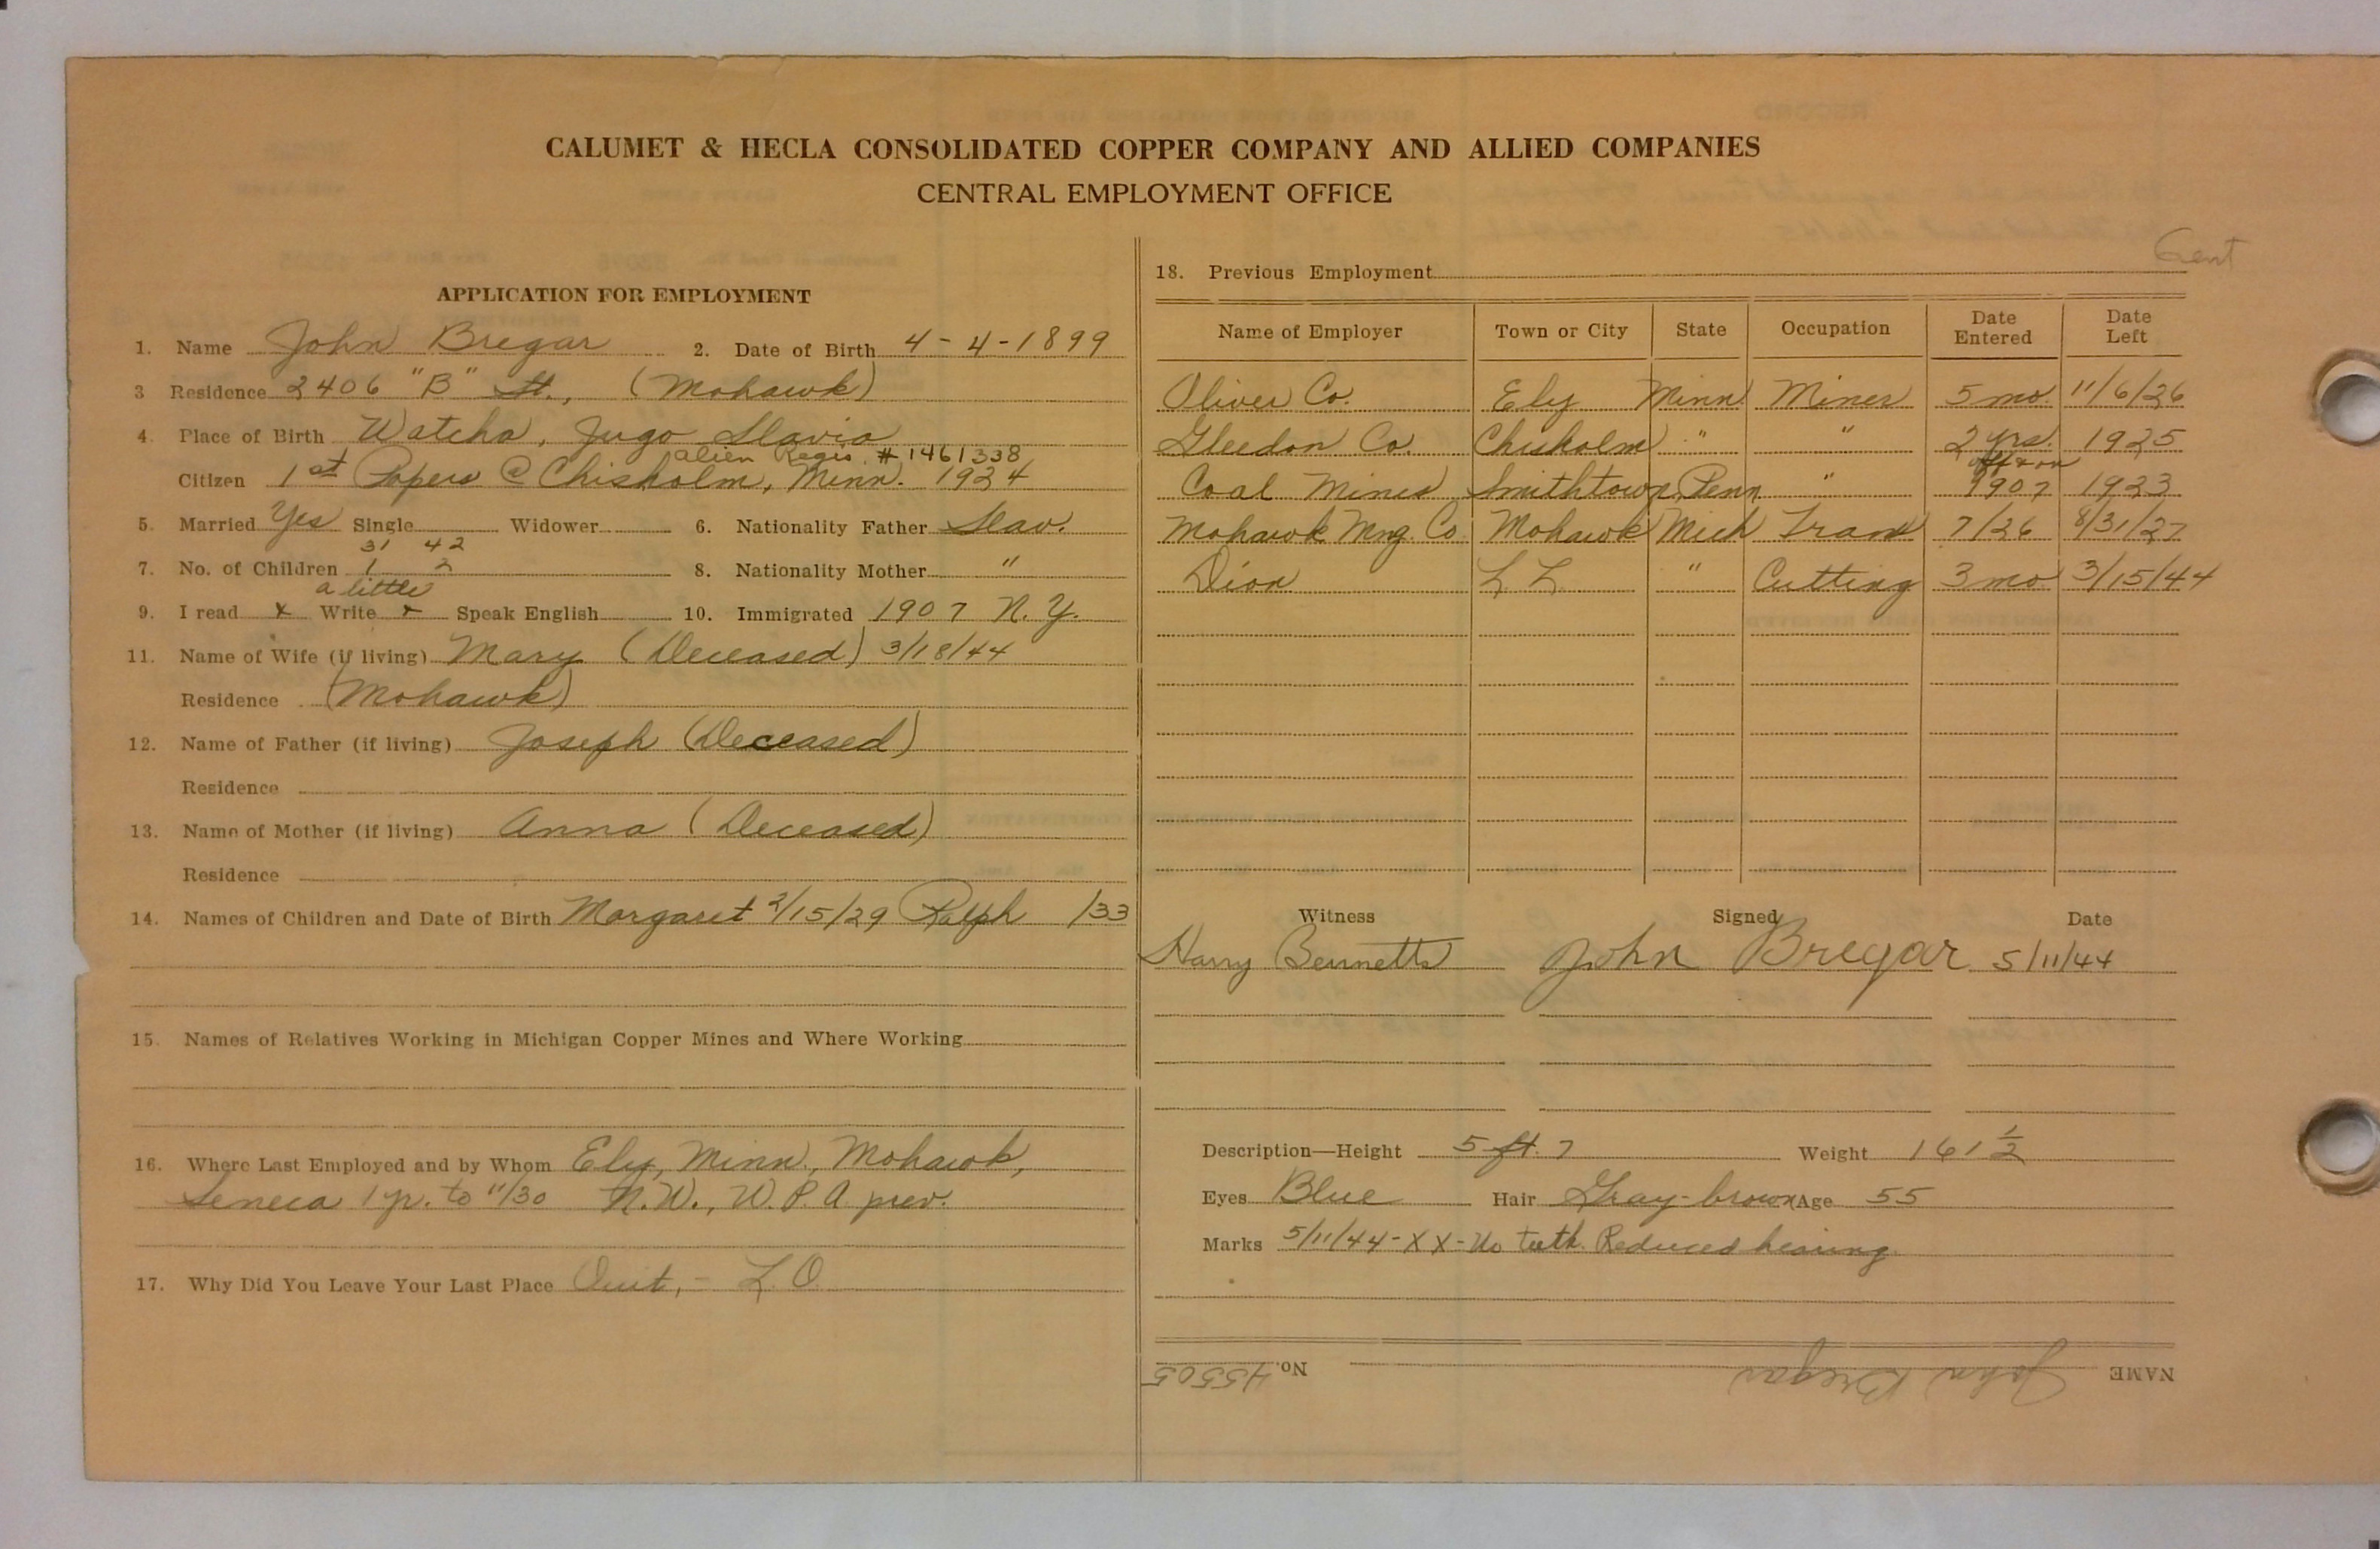 CALUMET & HECLA CONSOLIDATED COPPER COMPANY AND ALLIED COMPANIES
CENTRAL EMPLOYMENT OFFICE
APPLICATION FOR EMPLOYMENT
1. Name John Bregar 2. Date of Birth 4-4-1899
3 Residence 2406 "B" St., (Mohawk)
4. Place of Birth Watcha, Jugo Slavia
Alien Regis. #1461338
Citizen 1st Papers @ Chisholm, Minn. 1924
5. Married Yes Single Widower 6. Nationality Father Slav.
31 42
7. No. of Children 1 2 8. Nationality Mother "
a little
9. I read x Write x Speak English 10. Immigrated 1907 N.Y.
11. Name of Wife (if living) Mary (Deceased) 3/18/44
Residence (Mohawk)
12. Name of Father (if living) Joseph (Deceased)
Residence
13. Name of Mother (if living) Anna (Deceased)
Residence
14. Names of Children and Date of Birth Margaret 2/15/29 Ralph /33
15. Names of Relatives Working in Michigan Copper Mines and Where Working
16. Where Last Employed and by Whom Ely, Minn, Mohawk,
Seneca 1 yr. to 11/30 N.W., W.P.A prev.
17. Why Did You Leave Your Last Place Quit, - L.O.
18. Previous Employment
Name of Employer Town or City State Occupation Date Entered Date Left
Oliver Co. Ely Minn Miner 5 mo. 11/6/26
Co. Chisholm " " 2 yrs. 1925
off & on
Coal Mines Smithtown, Penn " 1907 1923
Mohawk Mng. Co. Mohawk Mich Tram 7/26 8/31/27
Dion L L " Cutting 3 mo 3/15/44
Witness Signed Date
Harry Bennetts John Bregar 5/11/44
Description—Height 5 ft. 7 Weight 161 1/2
Eyes Blue Hair Gray-brown Age 55
Marks 5/11/44-XX-No teeth. Reduced hearing
NAME John Bregar No. 45505